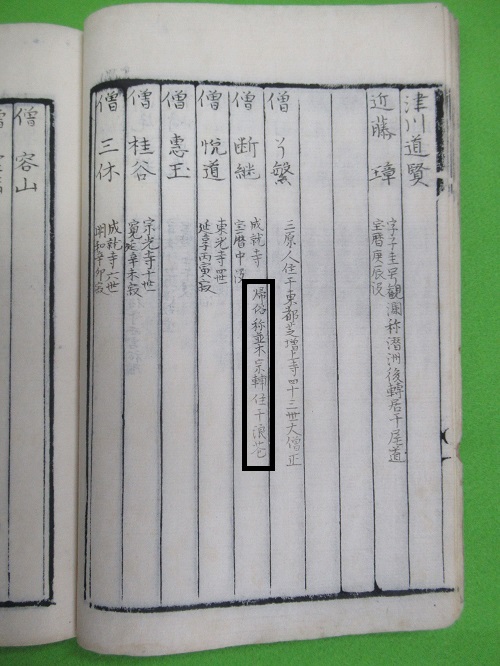 津川道賢
近藤瑋 字子圭号觀瀾称潜洲後轉居于尾道
宝曆庚辰没
僧了繁 三原人住于東都芝增上寺四十三世大僧正
僧断継 成就寺
帰俗称並木宗軒住于浪花
宝曆中没
僧悦道 東光寺四世
延享丙寅寂
僧惠玉
僧桂谷 宗光寺十世
寬延辛未寂
僧三休 成就寺六世
明和辛卯寂
僧容山